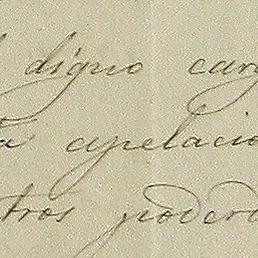 digno car
apelacio
tros poder